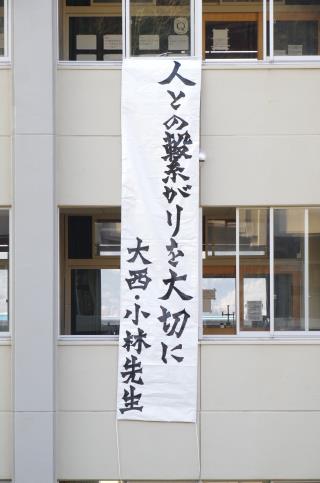 人との繋がりを大切に
大西・小林先生